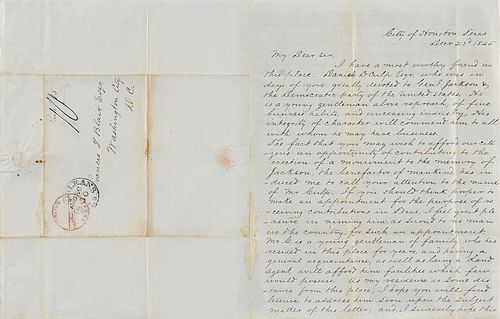 City of Houston Texas
Decr 21st 1845
My Dear Sir,
I have a most worthy friend in
this place. Daniel D Culp Esqr, who was in
days of yore greatly devoted to Genl Jackson &
the Democratic party of the United States. He
is a young gentleman above reproach, of fine
business habits, and unceasing industry. His
integrity of character will commend him to all
with whom he may have business.
The fact that you may wish to afford our citi
zens an opportunity of contributing to the
erection of a monument to the memory of
Jackson, the benefactor of mankind, has in
duced me to call your attention to the name
of Mr Culp. If you should think proper to
make an appointment for the purpose of re
ceiving contributions in Texas, I feel great ple
asure in naming him, as second to no man
in the country, for such an appointment.
Mr C. is a young gentleman of family, who has
resided in this place for years, and having a
general acquaintance, as well as being a Land
Agent, will afford him facilities which few
would possess. As my residence is some dis
tance from this place, I hope you will find
leisure to address him soon upon the subject
matter of this letter, and, I sincerely hope the
Francis P Blair Esqr.
Washington City
D.C.
10